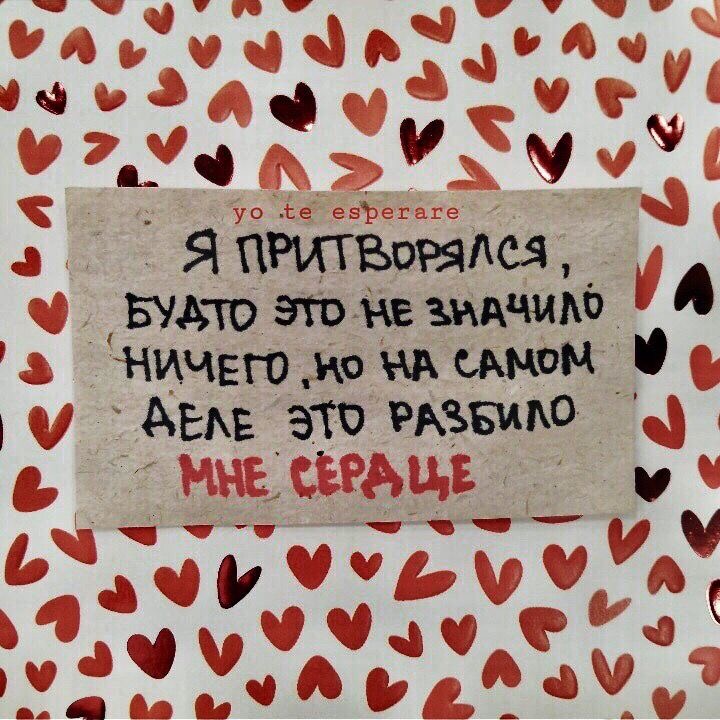 yo te esperare
Я ПРИТВОРЯЛСЯ,
БУДТО ЭТО НЕ ЗНАЧИЛО
НИЧЕГО, НО НА САМОМ
ДЕЛЕ ЭТО РАЗБИЛО
МНЕ СЕРДЦЕ